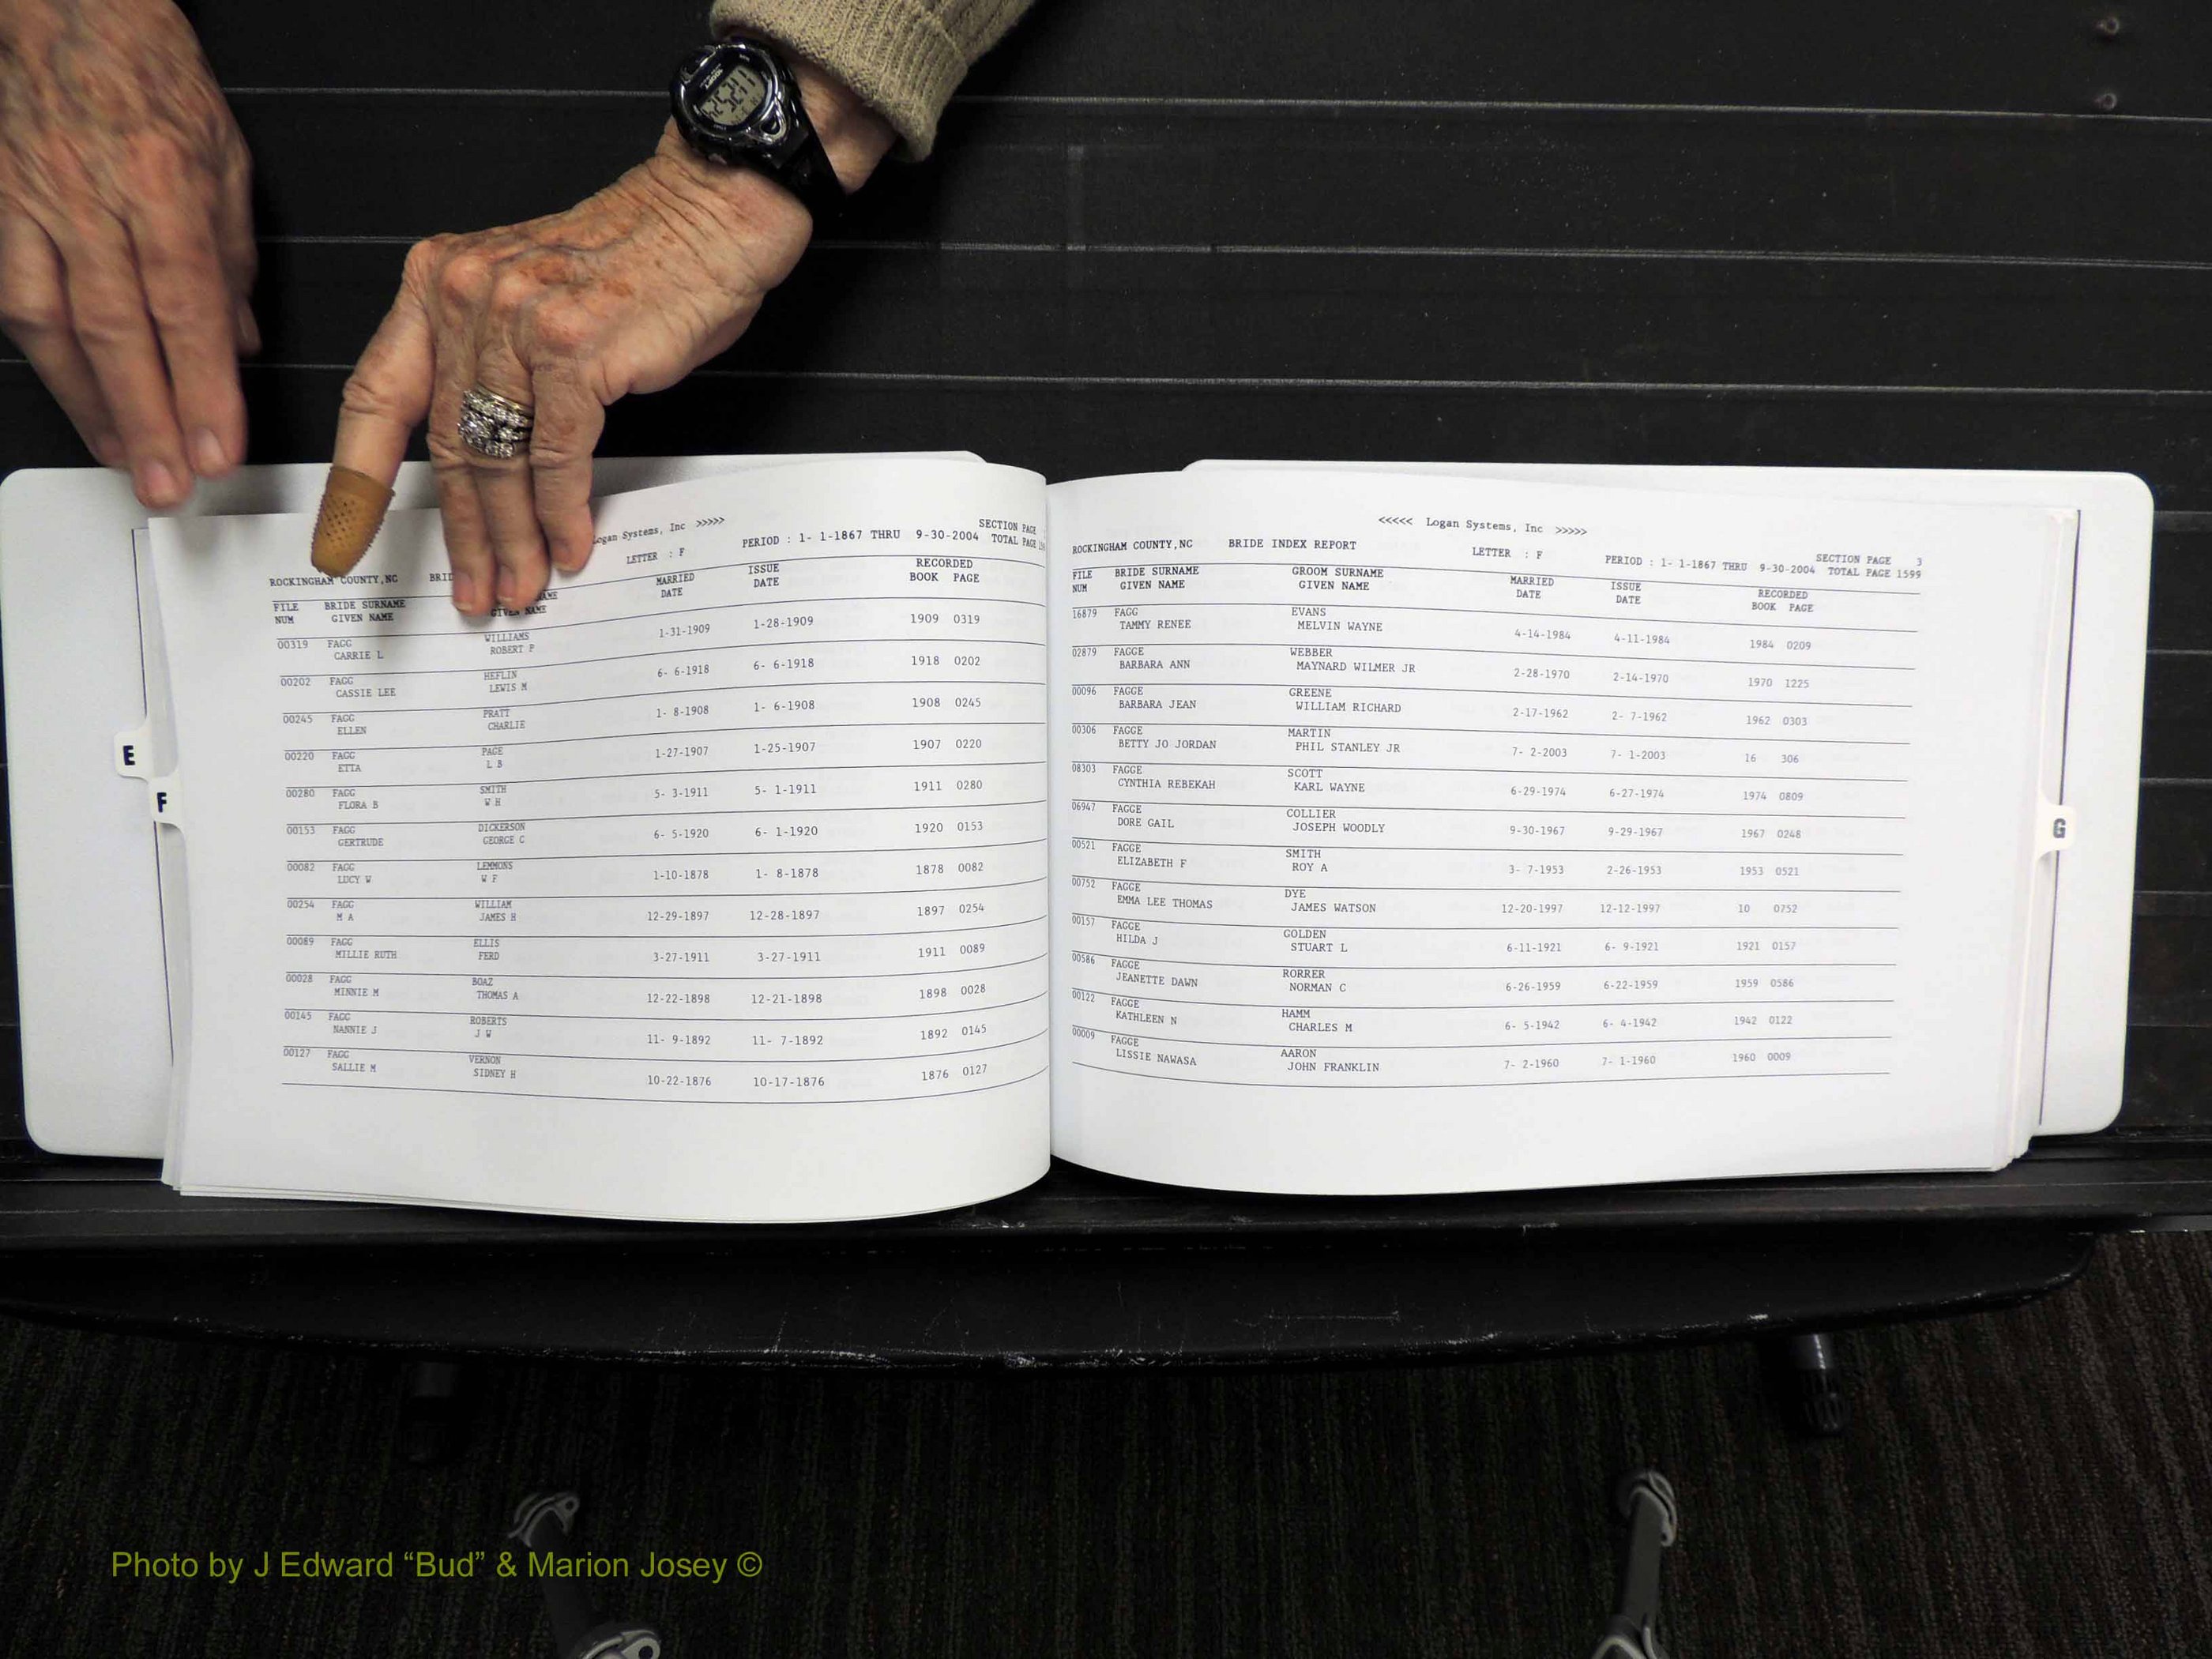 Logan Systems, Inc >>>>>
SECTION PAGE
ROCKINGHAM COUNTY,NC LETTER : F PERIOD : 1- 1-1867 THRU 9-30-2004 TOTAL PAGE
FILE BRIDE SURNAME MARRIED ISSUE RECORDED
NUM GIVEN NAME GIVEN NAME DATE DATE BOOK PAGE
00319 FAGG WILLIAMS
CARRIE L ROBERT P 1-31-1909 1-28-1909 1909 0319
00202 FAGG HEFLIN
CASSIE LEE LEWIS M 6- 6-1918 6- 6-1918 1918 0202
00245 FAGG PRATT
ELLEN CHARLIE 1- 8-1908 1- 6-1908 1908 0245
00220 FAGG PAGE
ETTA L B 1-27-1907 1-25-1907 1907 0220
00280 FAGG SMITH
FLORA B W H 5- 3-1911 5- 1-1911 1911 0280
00153 FAGG DICKERSON
GERTRUDE GEORGE C 6- 5-1920 6- 1-1920 1920 0153
00082 FAGG LEMMONS
LUCY W W F 1-10-1878 1- 8-1878 1878 0082
00254 FAGG WILLIAM
M A JAMES H 12-29-1897 12-28-1897 1897 0254
00089 FAGG ELLIS
MILLIE RUTH FERD 3-27-1911 3-27-1911 1911 0089
00028 FAGG BOAZ
MINNIE M THOMAS A 12-22-1898 12-21-1898 1898 0028
00145 FAGG ROBERTS
NANNIE J J W 11- 9-1892 11- 7-1892 1892 0145
00127 FAGG VERNON
SALLIE M SIDNEY H 10-22-1876 10-17-1876 1876 0127
E
F
<<<<< Logan Systems, Inc >>>>>
SECTION PAGE 3
ROCKINGHAM COUNTY,NC BRIDE INDEX REPORT LETTER : F PERIOD : 1- 1-1867 THRU 9-30-2004 TOTAL PAGE 1599
FILE BRIDE SURNAME GROOM SURNAME MARRIED ISSUE RECORDED
NUM GIVEN NAME GIVEN NAME DATE DATE BOOK PAGE
16879 FAGG EVANS
TAMMY RENEE MELVIN WAYNE 4-14-1984 4-11-1984 1984 0209
02879 FAGGE WEBBER
BARBARA ANN MAYNARD WILMER JR 2-28-1970 2-14-1970 1970 1225
00096 FAGGE GREENE
BARBARA JEAN WILLIAM RICHARD 2-17-1962 2- 7-1962 1962 0303
00306 FAGGE MARTIN
BETTY JO JORDAN PHIL STANLEY JR 7- 2-2003 7- 1-2003 16 306
08303 FAGGE SCOTT
CYNTHIA REBEKAH KARL WAYNE 6-29-1974 6-27-1974 1974 0809
06947 FAGGE COLLIER
DORE GAIL JOSEPH WOODLY 9-30-1967 9-29-1967 1967 0248
00521 FAGGE SMITH
ELIZABETH F ROY A 3- 7-1953 2-26-1953 1953 0521
00752 FAGGE DYE
EMMA LEE THOMAS JAMES WATSON 12-20-1997 12-12-1997 10 0752
00157 FAGGE GOLDEN
HILDA J STUART L 6-11-1921 6- 9-1921 1921 0157
00586 FAGGE RORRER
JEANETTE DAWN NORMAN C 6-26-1959 6-22-1959 1959 0586
00122 FAGGE HAMM
KATHLEEN N CHARLES M 6- 5-1942 6- 4-1942 1942 0122
00009 FAGGE AARON
LISSIE NAWASA JOHN FRANKLIN 7- 2-1960 7- 1-1960 1960 0009
G
Photo by J Edward “Bud” & Marion Josey ©